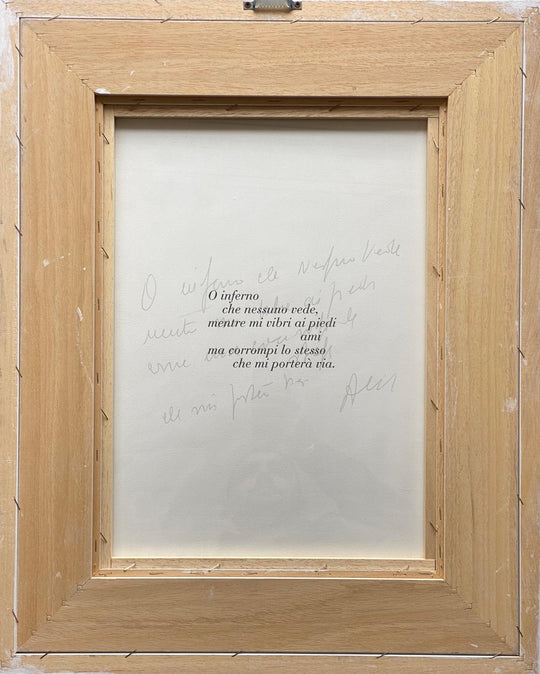 O inferno che nessuno vede
O inferno
che nessuno vede,
mentre mi vibri ai piedi
ami
ma corrompi lo stesso
che mi porterà via.
mentre ai piedi
come
che mi porterà via